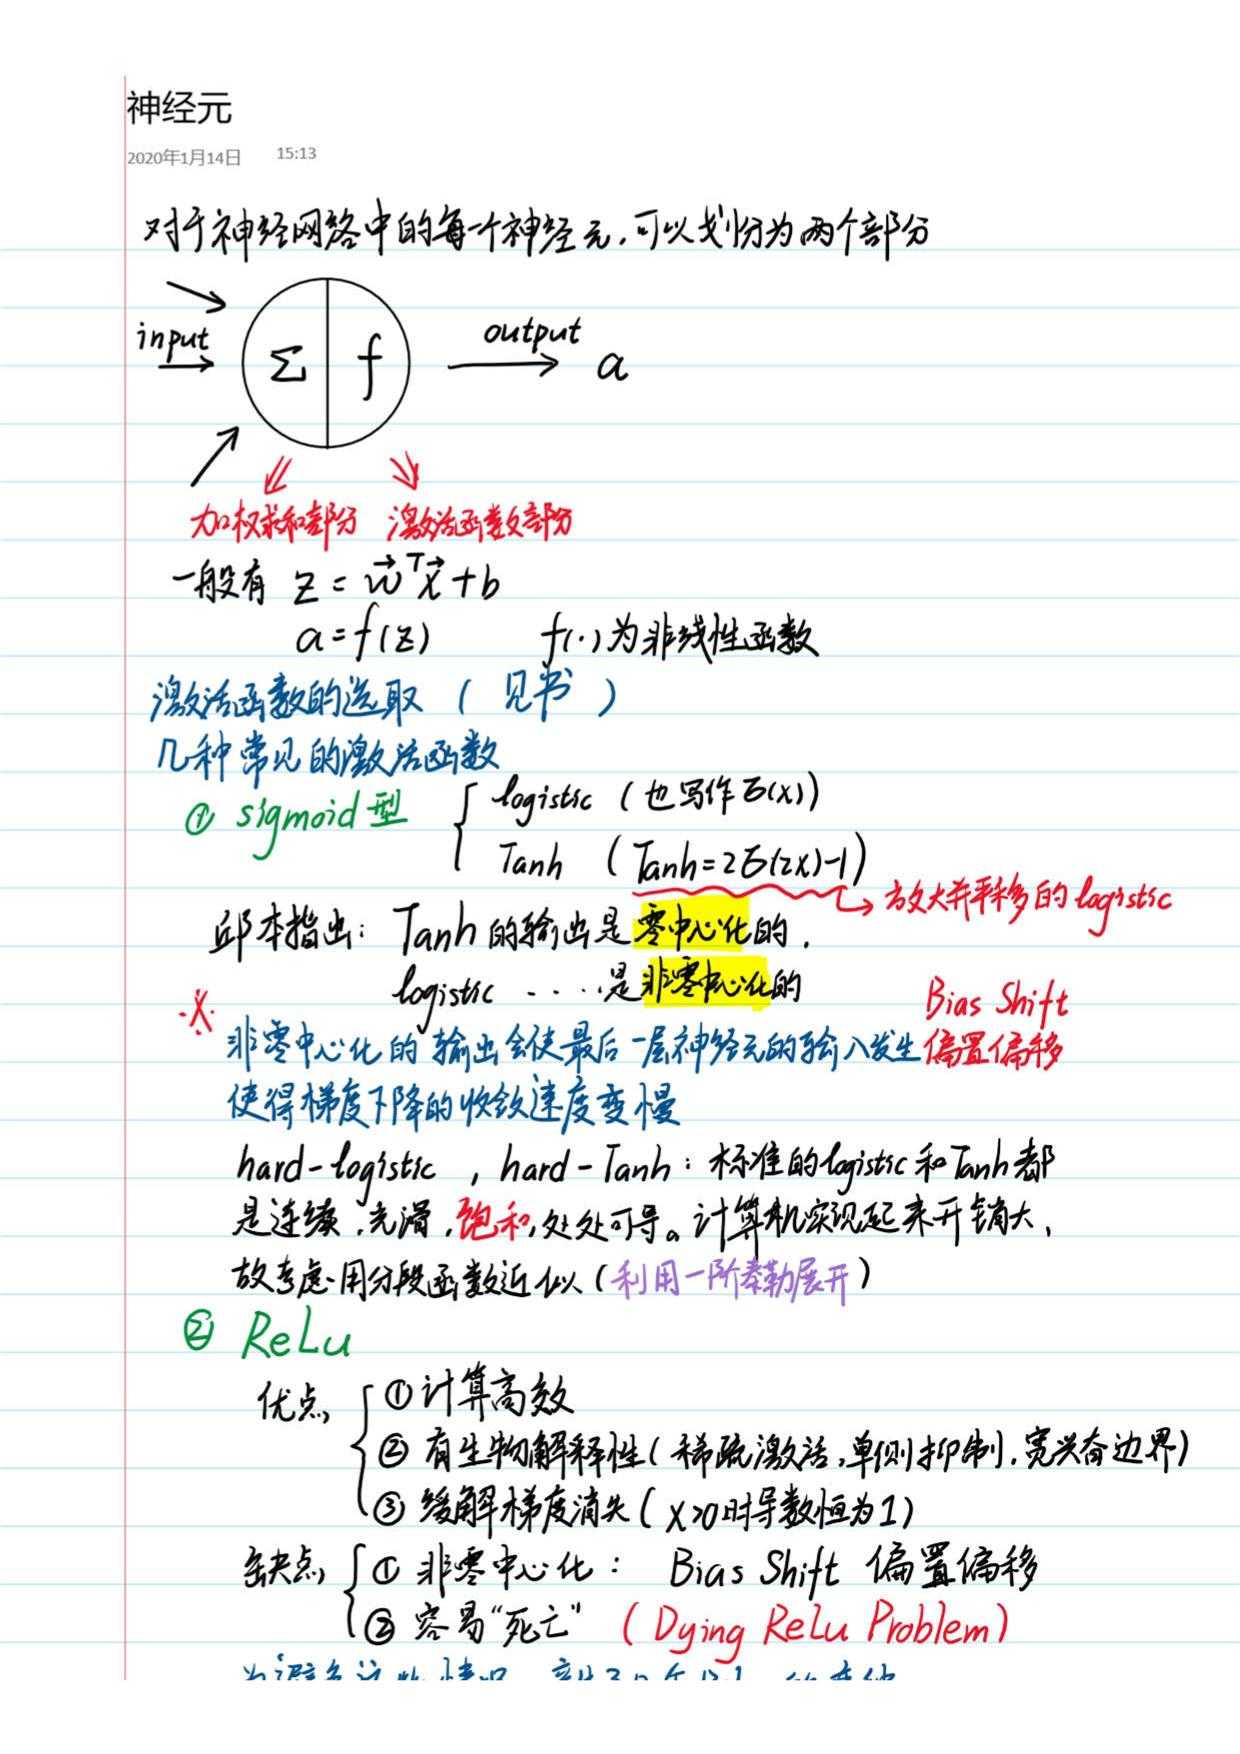 神经元
2020年1月14日 15:13
对于神经网络中的每个神经元,可以划分为两个部分
input Σ f output a
加权求和部分 激活函数部分
一般有 z = w⃗ᵀx⃗ + b
a = f(z) f(·)为非线性函数
激活函数的选取 ( 见书 )
几种常见的激活函数
① sigmoid型 { logistic (也写作σ(x))
Tanh (Tanh=2σ(2x)-1)
放大并平移的logistic
邱本指出: Tanh的输出是零中心化的.
logistic ....是非零中心化的
※
Bias Shift
非零中心化的输出会使最后一层神经元的输入发生偏置偏移
使得梯度下降的收敛速度变慢
hard-logistic , hard-Tanh: 标准的logistic和Tanh都
是连续,光滑,饱和,处处可导。计算机实现起来开销大,
故考虑用分段函数近似(利用一阶泰勒展开)
② ReLu
优点 { ①计算高效
② 有生物解释性(稀疏激活,单侧抑制,宽兴奋边界)
③ 缓解梯度消失(x>0时导数恒为1)
缺点 { ① 非零中心化: Bias Shift 偏置偏移
② 容易“死亡” (Dying ReLu Problem)